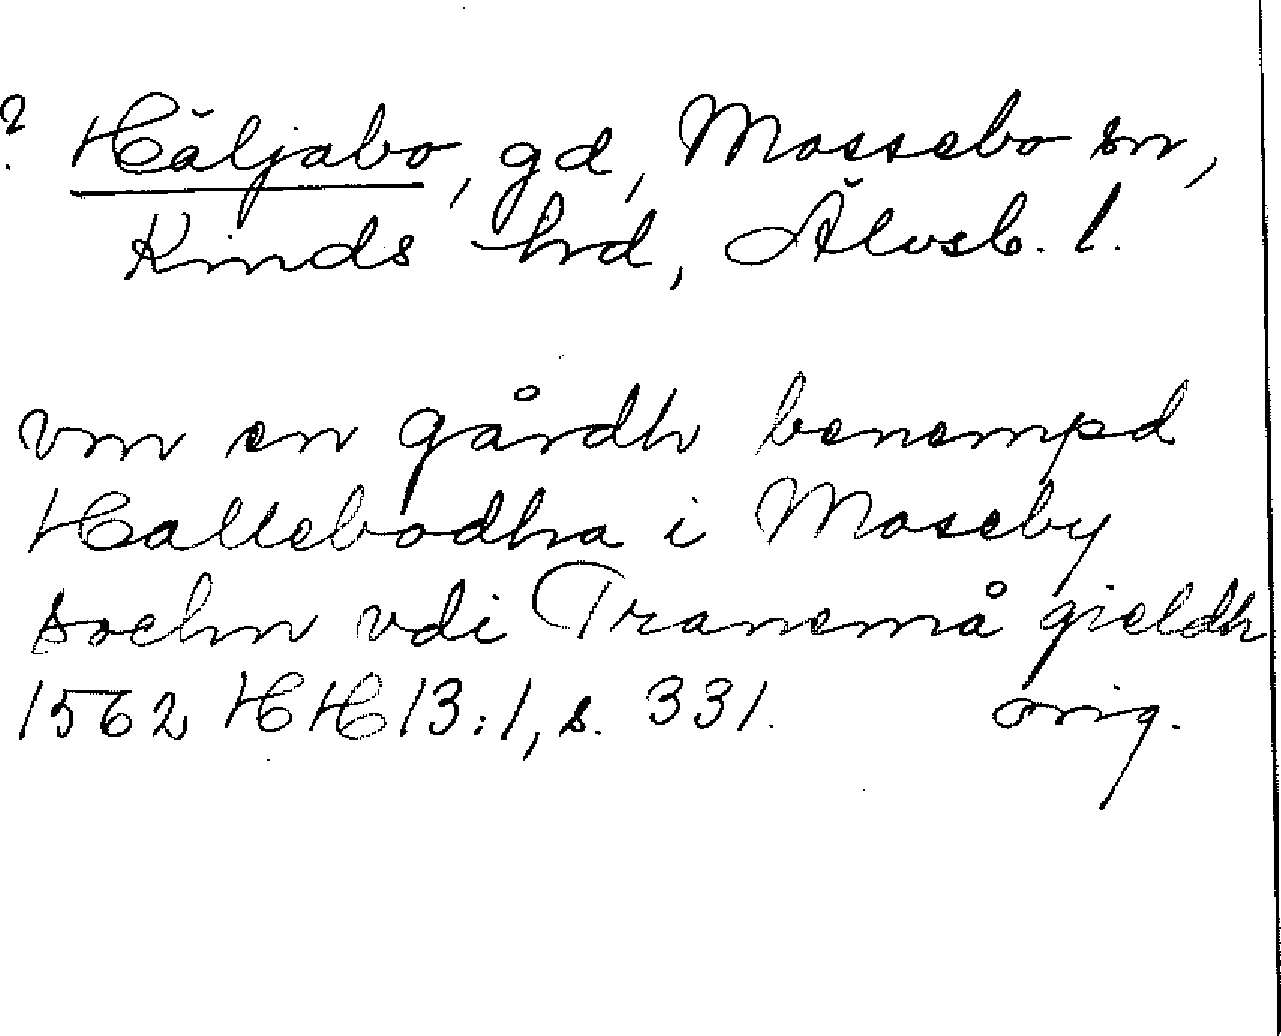 ? Häljabo, gd, Mossebo sn,
Kinds hd, Älvsb. l.
vm en gårdh benempd
Hallebodha i Moseby
sochn vdi Tranemå gieldh
1562 HH 13:1, s. 331. orig.